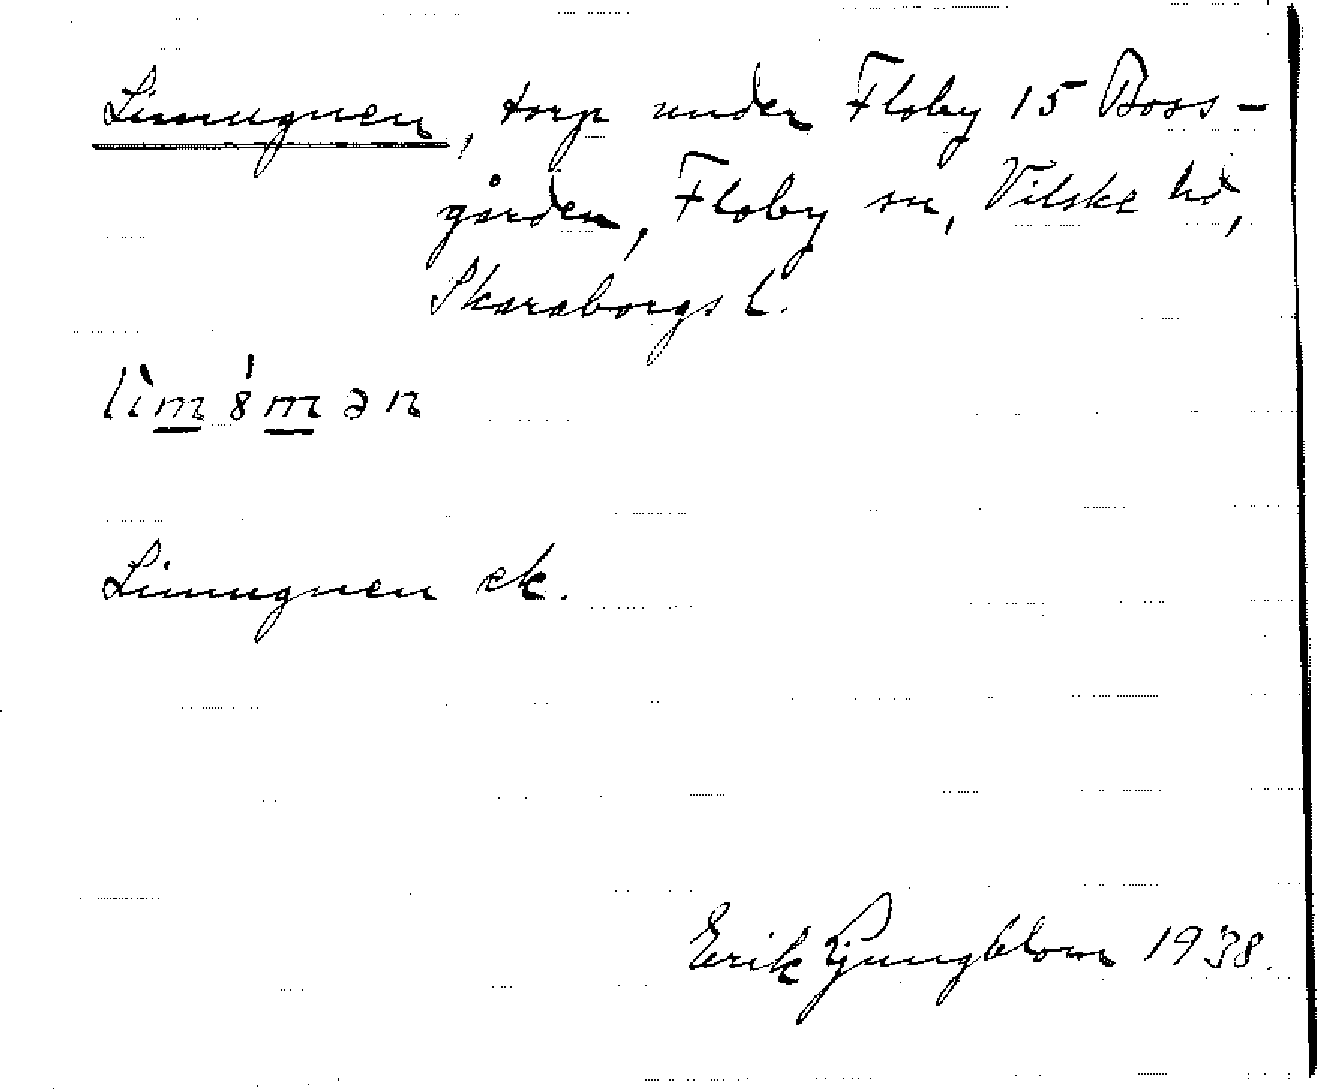 Limugnen, torp under Floby 15 Boss-
gården, Floby sn, Vilske hd,
Skaraborgs l.
Limugnen ek.
Erik Ljungblom 1938.